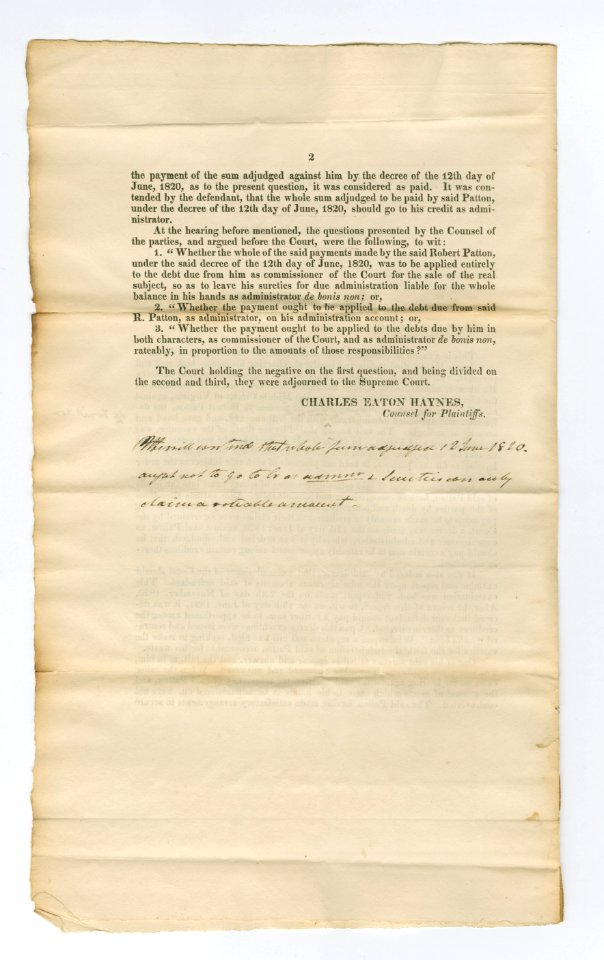 2
the payment of the sum adjudged against him by the decree of the 12th day of
June, 1820, as to the present question, it was considered as paid. It was con-
tended by the defendant, that the whole sum adjudged to be paid by said Patton,
under the decree of the 12th day of June, 1820, should go to his credit as admi-
nistrator.
At the hearing before mentioned, the questions presented by the Counsel of
the parties, and argued before the Court, were the following, to wit:
1. "Whether the whole of the said payments made by the said Robert Patton,
under the said decree of the 12th day of June, 1820, was to be applied entirely
to the debt due from him as commissioner of the Court for the sale of the real
subject, so as to leave his sureties for due administration liable for the whole
balance in his hands as administrator de bonis non; or,
2. "Whether the payment ought to be applied to the debt due from said
R. Patton, as administrator, on his administration account; or,
3. "Whether the payment ought to be applied to the debts due by him in
both characters, as commissioner of the Court, and as administrator de bonis non,
rateably, in proportion to the amounts of those responsibilities?"
The Court holding the negative on the first question, and being divided on
the second and third, they were adjourned to the Supreme Court.
CHARLES EATON HAYNES,
Counsel for Plaintiffs.
will contend that whole sum adjudged 12 June 1820.
ought not to go to Cr as admnr & Sureties can only
claim a rateable amount.